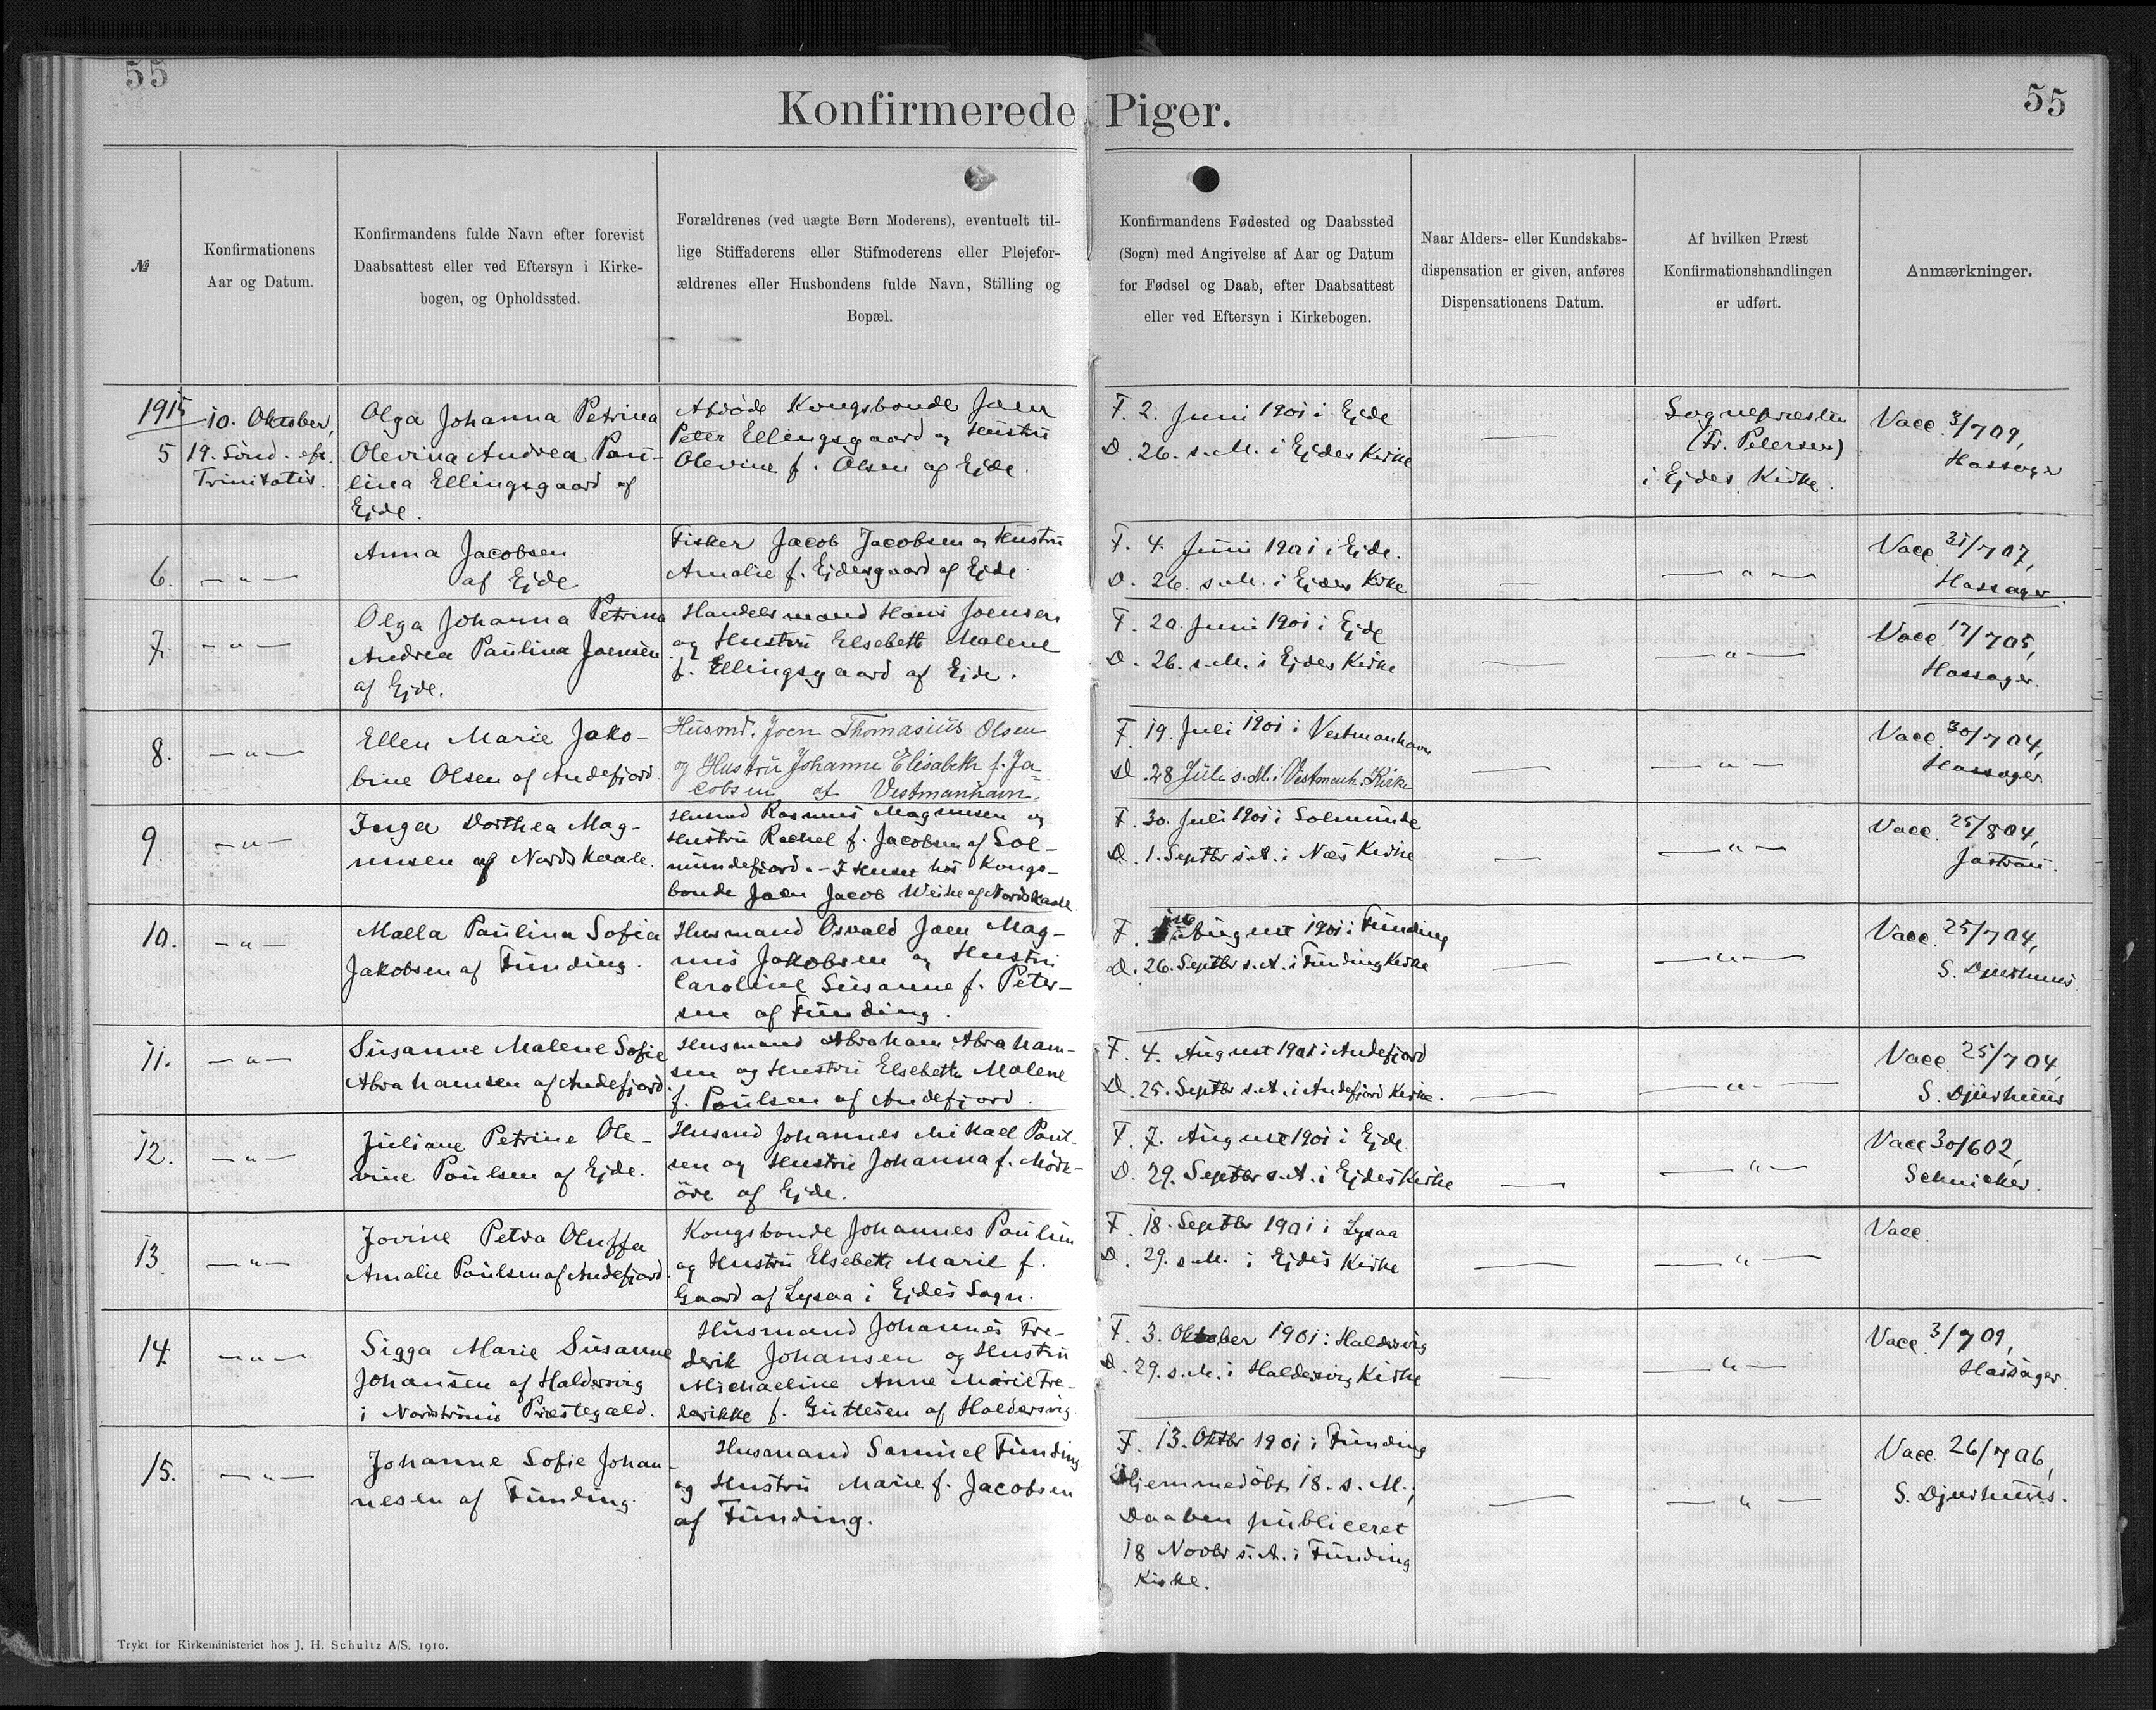 55
55
Konfirmerede Piger.
№
Konfirmationens
Aar og Datum.
Konfirmandens fulde Navn efter forevist
Daabsattest eller ved Eftersyn i Kirke-
bogen, og Opholdssted.
Forældrenes (ved uægte Børn Moderens), eventuelt til-
lige Stiffaderens eller Stifmoderens eller Plejefor-
ældrenes eller Husbondens fulde Navn, Stilling og
Bopæl.
Konfirmandens Fødested og Daabssted
(Sogn) med Angivelse af Aar og Datum
for Fødsel og Daab, efter Daabsattest
eller ved Eftersyn i Kirkebogen.
Naar Alders- eller Kundskabs-
dispensation er given, anføres
Dispensationens Datum.
Af hvilken Præst
Konfirmationshandlingen
er udført.
Anmærkninger.
1915
5
10. Oktober,
19. Sönd. eft.
Trinitatis.
Olga Johanna Petrina
Olevina Andrea Pau-
lina Ellingsgaard af
Ejde.
Afdöde Kongsbonde Joen
Peter Ellingsgaard og Hustru
Olevine f. Olsen og Ejde.
F. 2. Juni 1901 i Ejde
D. 26. s. M. i Ejdes Kirke
—
Sognepræsten
(Fr. Petersen)
i Ejdes Kirke.
Vacc. 3/7 09,
Hassager
6.
— " —
Anna Jacobsen
af Ejde
Fisker Jacob Jacobsen og Hustru
Amalie f. Ejdesgaard af Ejde.
F. 4. Juni 1901 i Ejde.
D. 26. s. M. i Ejdes Kirke
—
— " —
Vacc. 31/7 07,
Hassager.
7.
— " —
Olga Johanna Petrina
Andrea Paulina Joensen
af Ejde.
Handelsmand Hans Joensen
og Hustru Elsebeth Malene
f. Ellingsgaard af Ejde.
F. 20. Juni 1901 i Ejde
D. 26. s. M. i Ejdes Kirke
—
— " —
Vacc. 17/7 05,
Hassager.
8.
— " —
Ellen Marie Jako-
bine Olsen af Andefjord.
Husmd. Joen Thomasius Olsen
og Hustru Johanne Elisabeth f. Ja-
cobsen af Vestmanhavn.
F. 19. Juli 1901 i Vestmanhavn
D. 28 Juli s. M. i Vestmanh. Kirke
—
— " —
Vacc. 30/7 04,
Hassager
9.
— " —
Inga Dorthea Mag-
nusen af Nordskaale.
Husmd Rasmus Magnusen og
Hustru Rachel f. Jacobsen af Sol-
mundefjord. – I Huset hos Kongs-
bonde Joen Jacob Weihe af Nordskaale.
F. 30. Juli 1901 i Solmunde
D. 1. Septbr s. A. i Næs Kirke
—
— " —
Vacc. 25/8 04,
Jastrau.
10.
— " —
Malla Paulina Sofia
Jakobsen af Funding.
Husmand Osvald Joen Mag-
nus Jakobsen og Hustru
Caroline Susanne f. Peter-
sen af Funding.
F. 1ste August 1901 i Funding
D. 26. Septbr s. A. i Funding Kirke
—
— " —
Vacc. 25/7 04,
S. Djurhuus.
11.
— " —
Susanne Malene Sofie
Abrahamsen af Andefjord.
Husmand Abraham Abraham-
sen og Hustru Elsebeth Malene
f. Poulsen af Andefjord.
F. 4. August 1901 i Andefjord
D. 25. Septbr s. A. i Andefjord Kirke.
—
— " —
Vacc. 25/7 04,
S. Djurhuus
12.
— " —
Juliane Petrine Ole-
vine Poulsen af Ejde.
Husmd Johannes Mikael Poul-
sen og Hustru Johanna f. Mörk-
öre af Ejde.
F. 7. August 1901 i Ejde.
D. 29. Septbr s. A. i Ejdes Kirke
—
— " —
Vacc 30/6 02,
Schnicker.
13.
— " —
Jovine Petra Oluffa
Amalie Poulsen af Andefjord.
Kongsbonde Johannes Poulsen
og Hustru Elsebeth Marie f.
Gaard af Lysaa i Ejdes Sogn.
F. 18. Septbr 1901 i Lysaa
D. 29. s. M. i Ejdes Kirke
—
— " —
Vacc.
14.
— " —
Sigga Marie Susanne
Johansen af Haldersvig
i Nordströmö Præstegæld.
Husmand Johannes Fre-
derik Johansen og Hustru
Michaeline Anne Marie Fre-
derikke f. Guttesen af Haldersvig
F. 3. Oktober 1901 i Haldersvig
D. 29. s. M. i Haldersvig Kirke
—
— " —
Vacc. 3/7 09,
Hassager.
15.
— " —
Johanne Sofie Johan-
nesen af Funding.
Husmand Samuel Funding
og Hustru Marie f. Jacobsen
af Funding.
F. 13. Oktbr 1901 i Funding
Hjemmedöbt 18. s. M.;
Daaben publiceret
18 Novbr s. A. i Funding
Kirke.
—
— " —
Vacc. 26/7 06,
S. Djurhuus.
Trykt for Kirkeministeriet hos J. H. Schultz A/S. 1910.